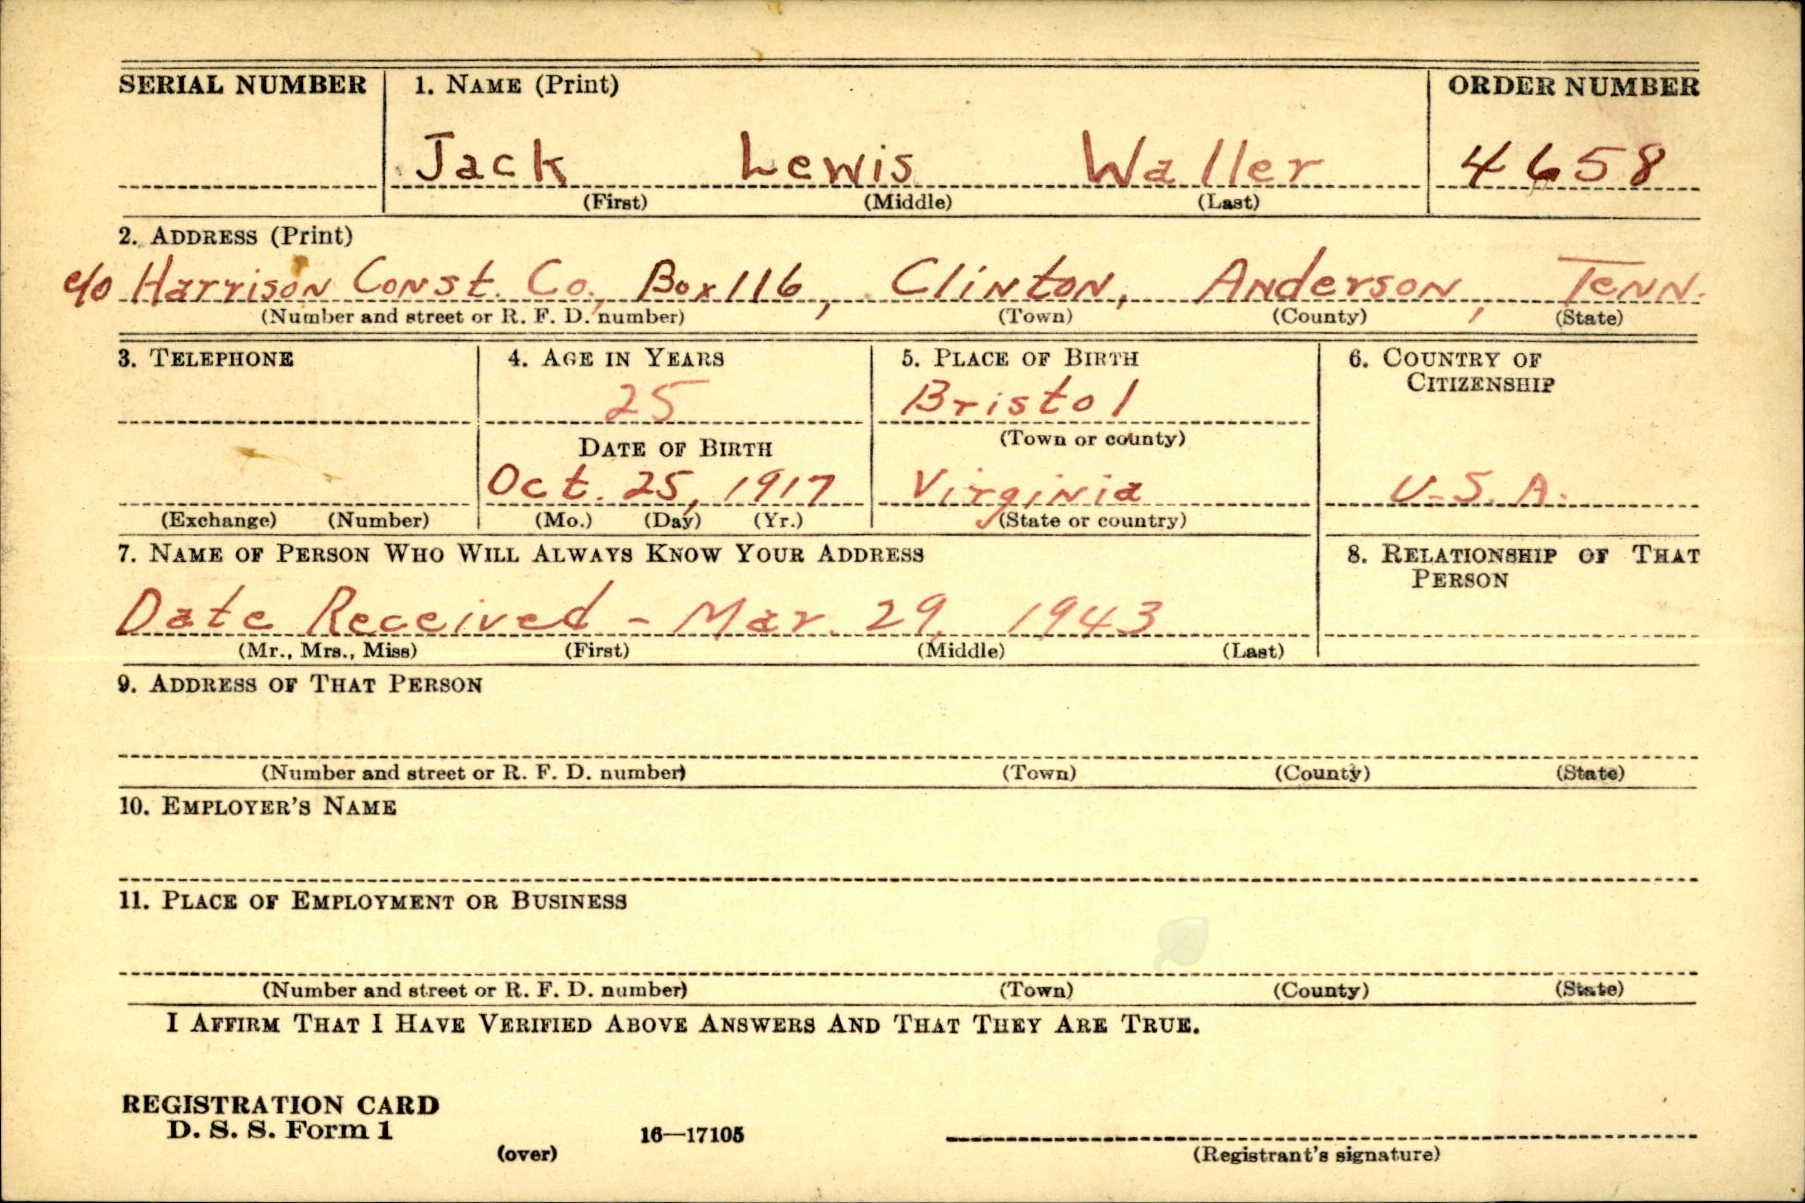 SERIAL NUMBER 1. NAME (Print) ORDER NUMBER
Jack Lewis Waller 4658
(First) (Middle) (Last)
2. ADDRESS (Print)
c/o Harrison Const. Co., Box 116, Clinton, Anderson, Tenn.
(Number and street or R. F. D. number) (Town) (County) (State)
3. TELEPHONE 4. AGE IN YEARS 5. PLACE OF BIRTH 6. COUNTRY OF
CITIZENSHIP
25 Bristol
DATE OF BIRTH (Town or county)
Oct. 25, 1917 Virginia U.S.A.
(Exchange) (Number) (Mo.) (Day) (Yr.) (State or country)
7. NAME OF PERSON WHO WILL ALWAYS KNOW YOUR ADDRESS 8. RELATIONSHIP OF THAT
PERSON
Date Received - Mar. 29, 1943
(Mr., Mrs., Miss) (First) (Middle) (Last)
9. ADDRESS OF THAT PERSON
(Number and street or R. F. D. number) (Town) (County) (State)
10. EMPLOYER'S NAME
11. PLACE OF EMPLOYMENT OR BUSINESS
(Number and street or R. F. D. number) (Town) (County) (State)
I AFFIRM THAT I HAVE VERIFIED ABOVE ANSWERS AND THAT THEY ARE TRUE.
REGISTRATION CARD
D. S. S. Form 1 16—17105
(over) (Registrant's signature)